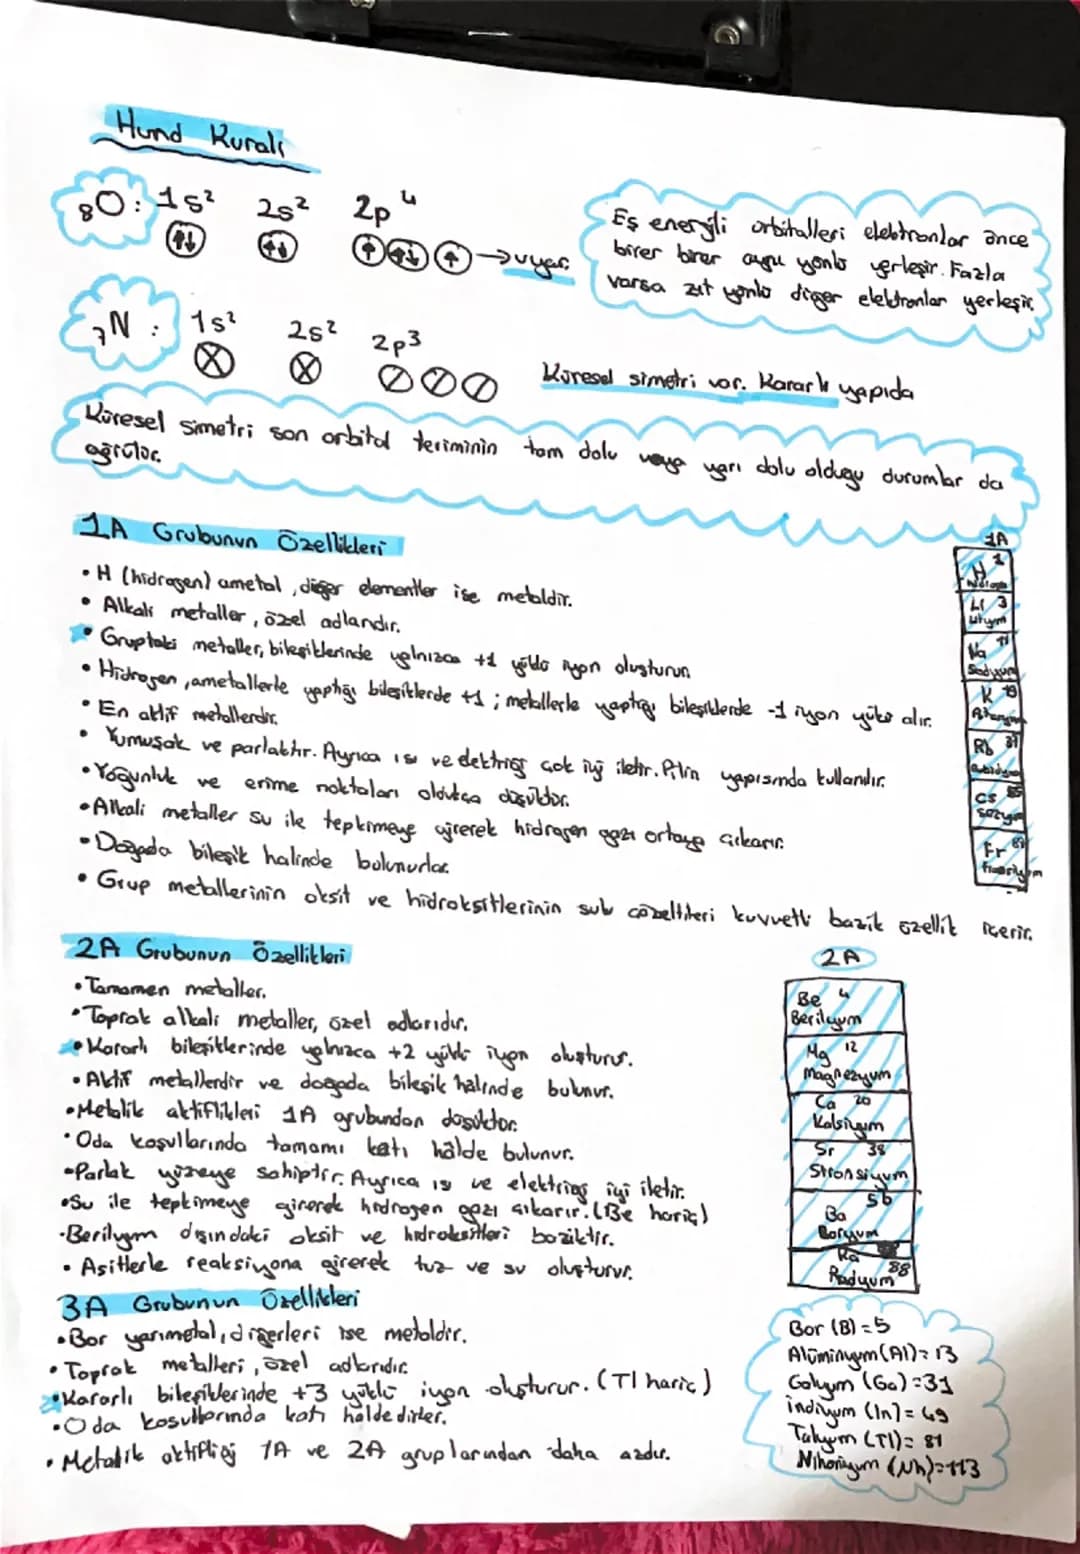 Hund Kuralı
8O: 1s² 2s² 2p⁴
→ uyar.
Eş enerjili orbitalleri elektronlar önce
birer birer aynı yönlü yerleşir. Fazla
varsa zıt yönlü diğer elektronlar yerleşir.
7N : 1s² 2s² 2p³
Küresel simetri var. Kararlı yapıda
Küresel simetri son orbital teriminin tam dolu veya yarı dolu olduğu durumlar da
görülür.
1A Grubunun Özellikleri
• H (hidrogen) ametal, diğer elementler ise metaldir.
• Alkali metaller, özel adlarıdır.
• Gruptaki metaller, bileşiklerinde yalnızca +1 yüklü iyon oluşturur.
• Hidrogen, ametallerle yaptığı bileşiklerde +1 ; metallerle yaptığı bileşiklerde -1 iyon yükü alır.
• En aktif metallerdir.
• Yumuşak ve parlaktır. Ayrıca ısı ve elektriği çok iyi iletir. Pilin yapısında kullanılır.
• Yoğunluk ve erime noktaları oldukça düşüktür.
• Alkali metaller su ile tepkimeye girerek hidrogen gazı ortaya çıkarır.
• Doğada bileşik halinde bulunurlar.
• Grup metallerinin oksit ve hidroksitlerinin sulu çözeltileri kuvvetli bazik özellik içerir.
1A
H 1
Li 3
Lityum
Na 11
Sodyum
K 19
Rb 37
Cs 55
Sezyum
Fr 87
Fransiyum
2A Grubunun Özellikleri
• Tamamen metaller.
• Toprak alkali metaller, özel adlarıdır.
• Kararlı bileşiklerinde yalnızca +2 yüklü iyon oluşturur.
• Aktif metallerdir ve doğada bileşik halinde bulunur.
• Metalik aktiflikleri 1A grubundan düşüktür.
• Oda koşullarında tamamı katı hâlde bulunur.
• Parlak yüzeye sahiptir. Ayrıca ısı ve elektriği iyi iletir.
• Su ile tepkimeye girerek hidrogen gazı çıkarır. (Be hariç)
• Berilyum dışındaki oksit ve hidroksitleri baziktir.
• Asitlerle reaksiyona girerek tuz ve su oluşturur.
2A
Be 4
Berilyum
Mg 12
Magnezyum
Ca 20
Kalsiyum
Sr 38
Stronsiyum
56
Ba
Baryum
Ra 88
Radyum
3A Grubunun Özellikleri
• Bor yarımetal, diğerleri ise metaldir.
• Toprak metalleri, özel adlarıdır.
• Kararlı bileşiklerinde +3 yüklü iyon oluşturur. (Tl hariç)
• Oda koşullarında katı haldedirler.
• Metalik aktifliği 1A ve 2A gruplarından daha azdır.
Bor (B) = 5
Alüminyum (Al) = 13
Galyum (Ga) = 31
indiyum (In) = 49
Talyum (Tl) = 81
Nihoniyum (Nh) = 113